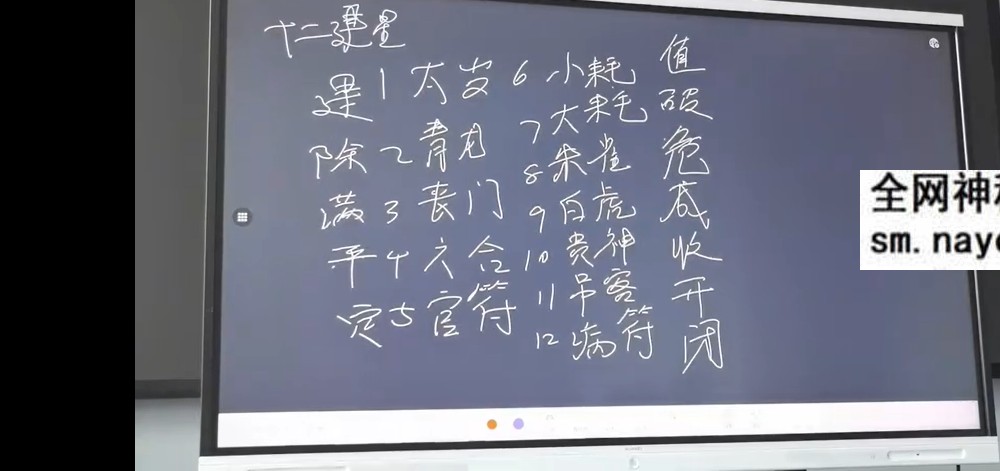 十二建星
建 1 太岁 6 小耗 值
除 2 青龙 7 大耗 破
满 3 丧门 8 朱雀 危
平 4 六合 9 白虎 成
定 5 官符 10 贵神 收
11 吊客 开
12 病符 闭
全网神
sm.naye